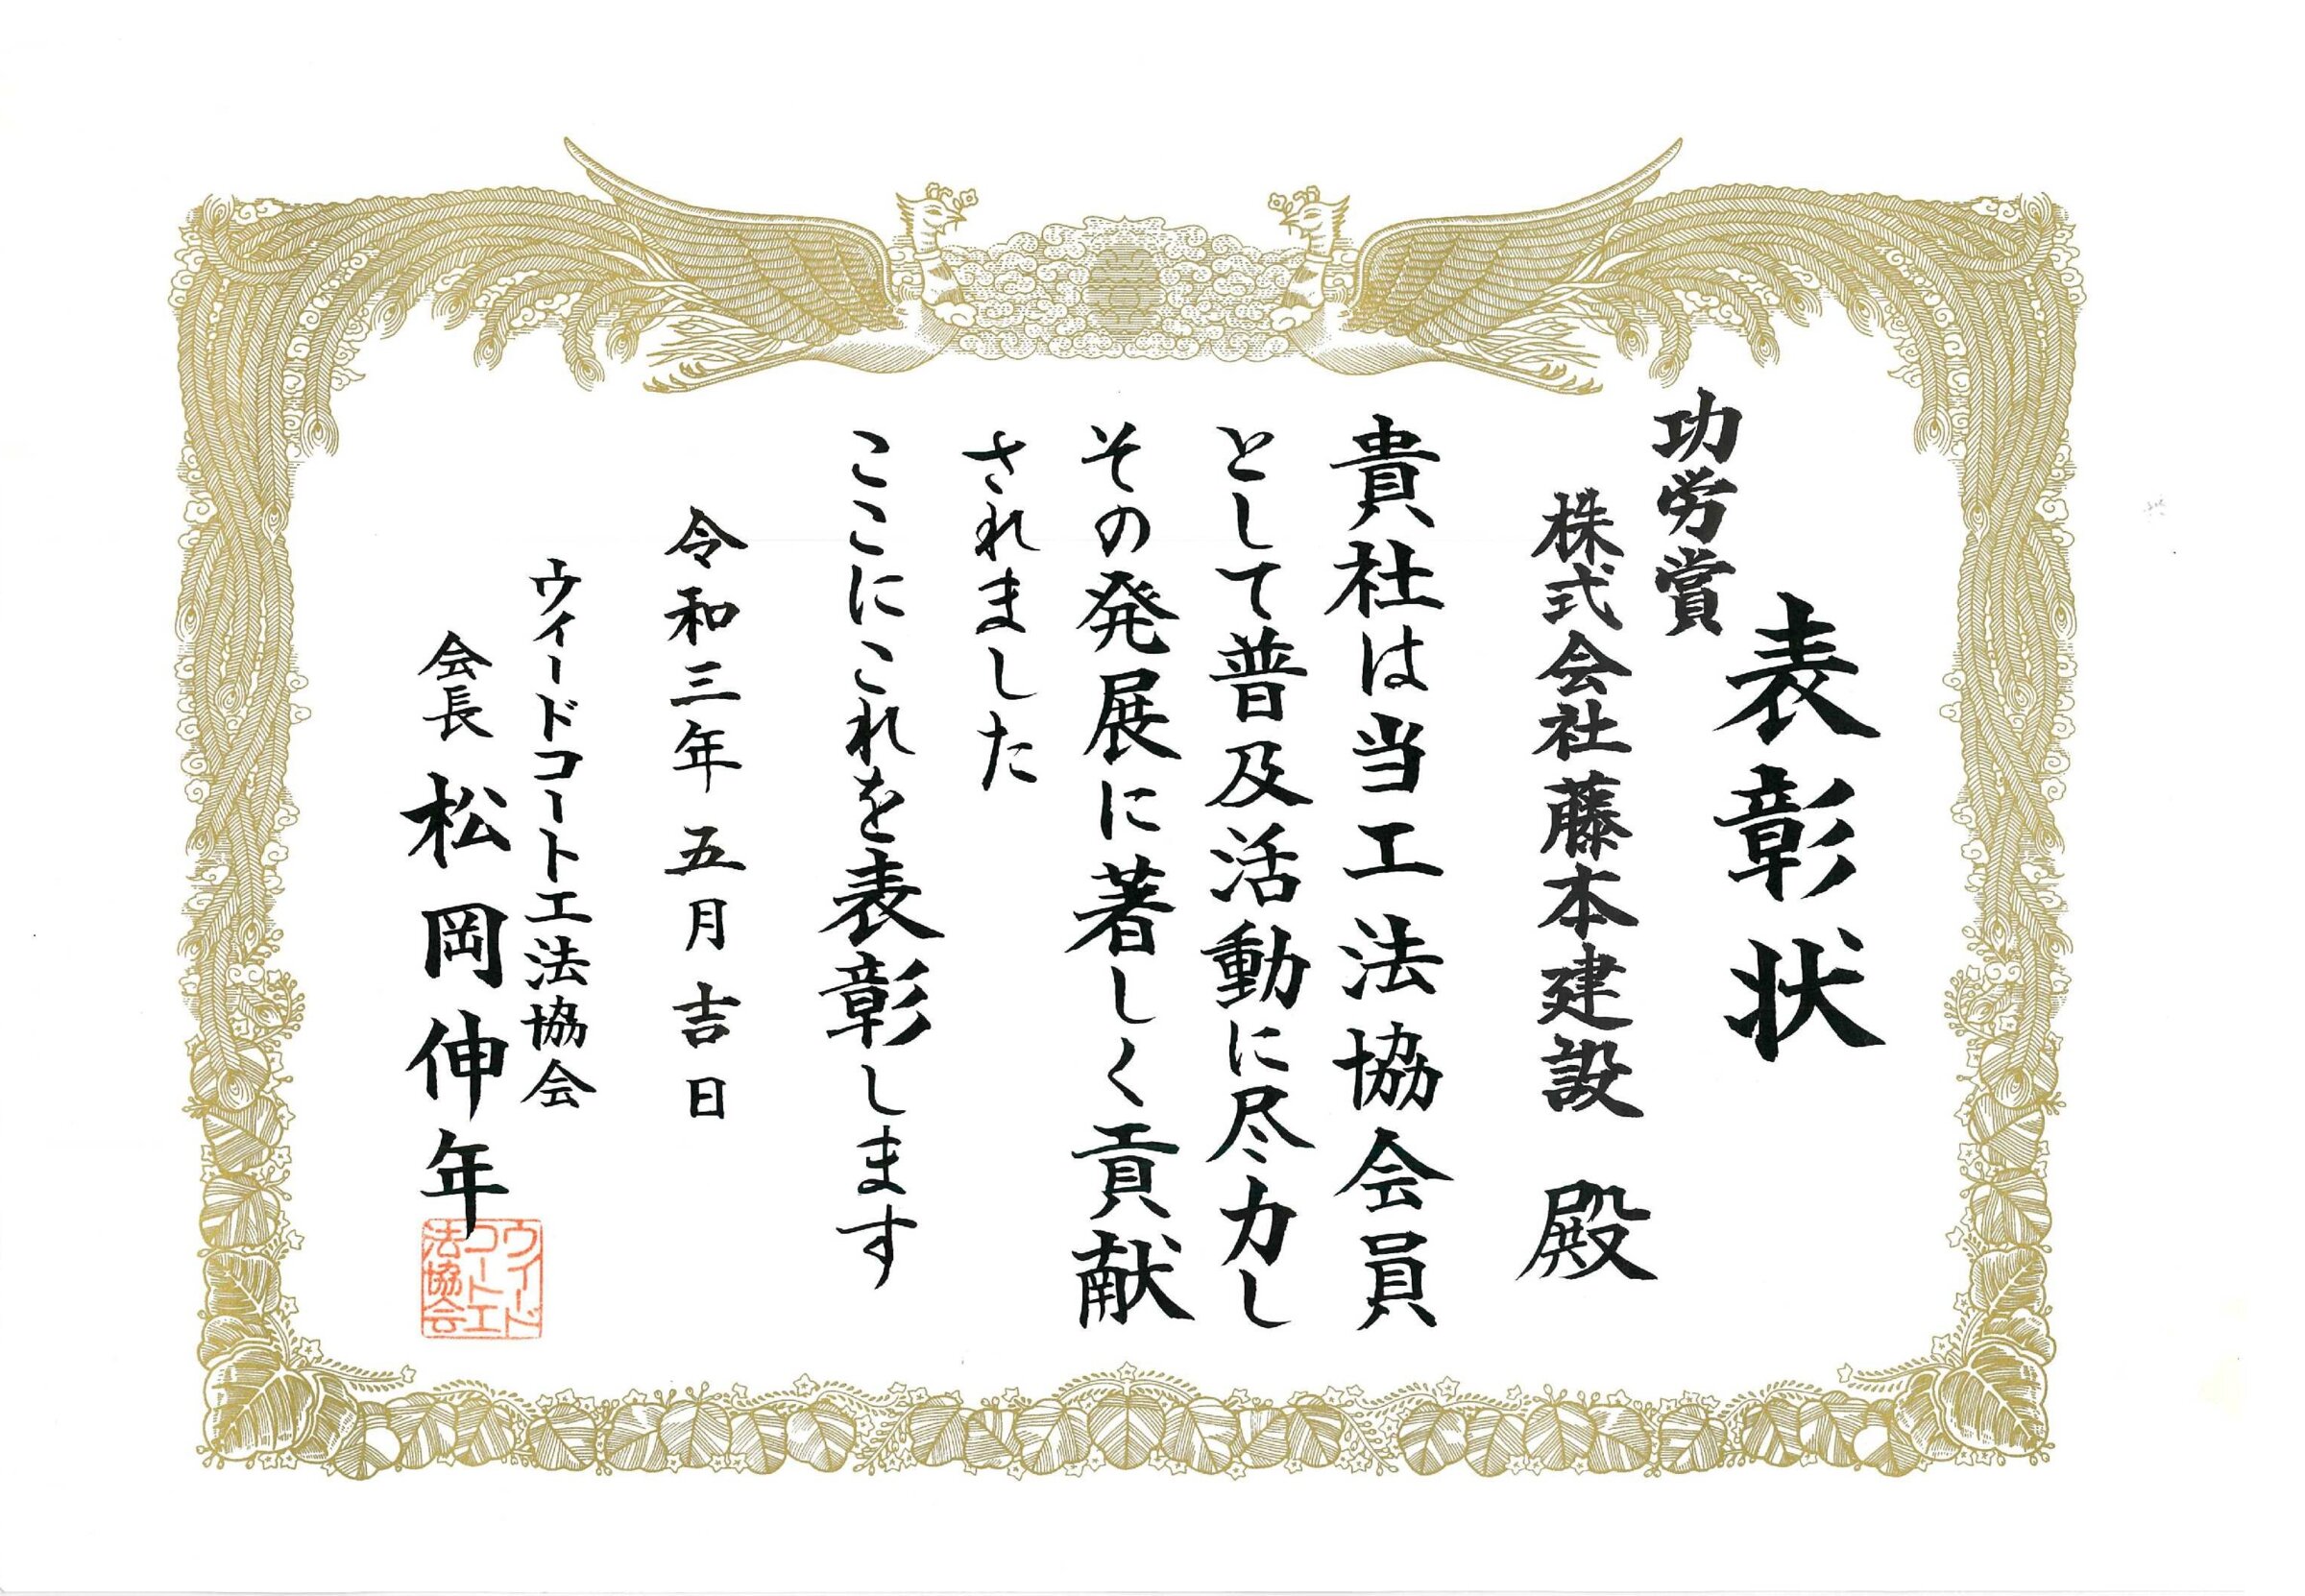 表彰状
功労賞
株式会社藤本建設 殿
貴社は当工法協会員
として普及活動に尽力し
その発展に著しく貢献
されました
ここにこれを表彰します
令和三年 五月吉日
ウィードコート工法協会
会長 松岡伸年
ウイード
コート工
法協会